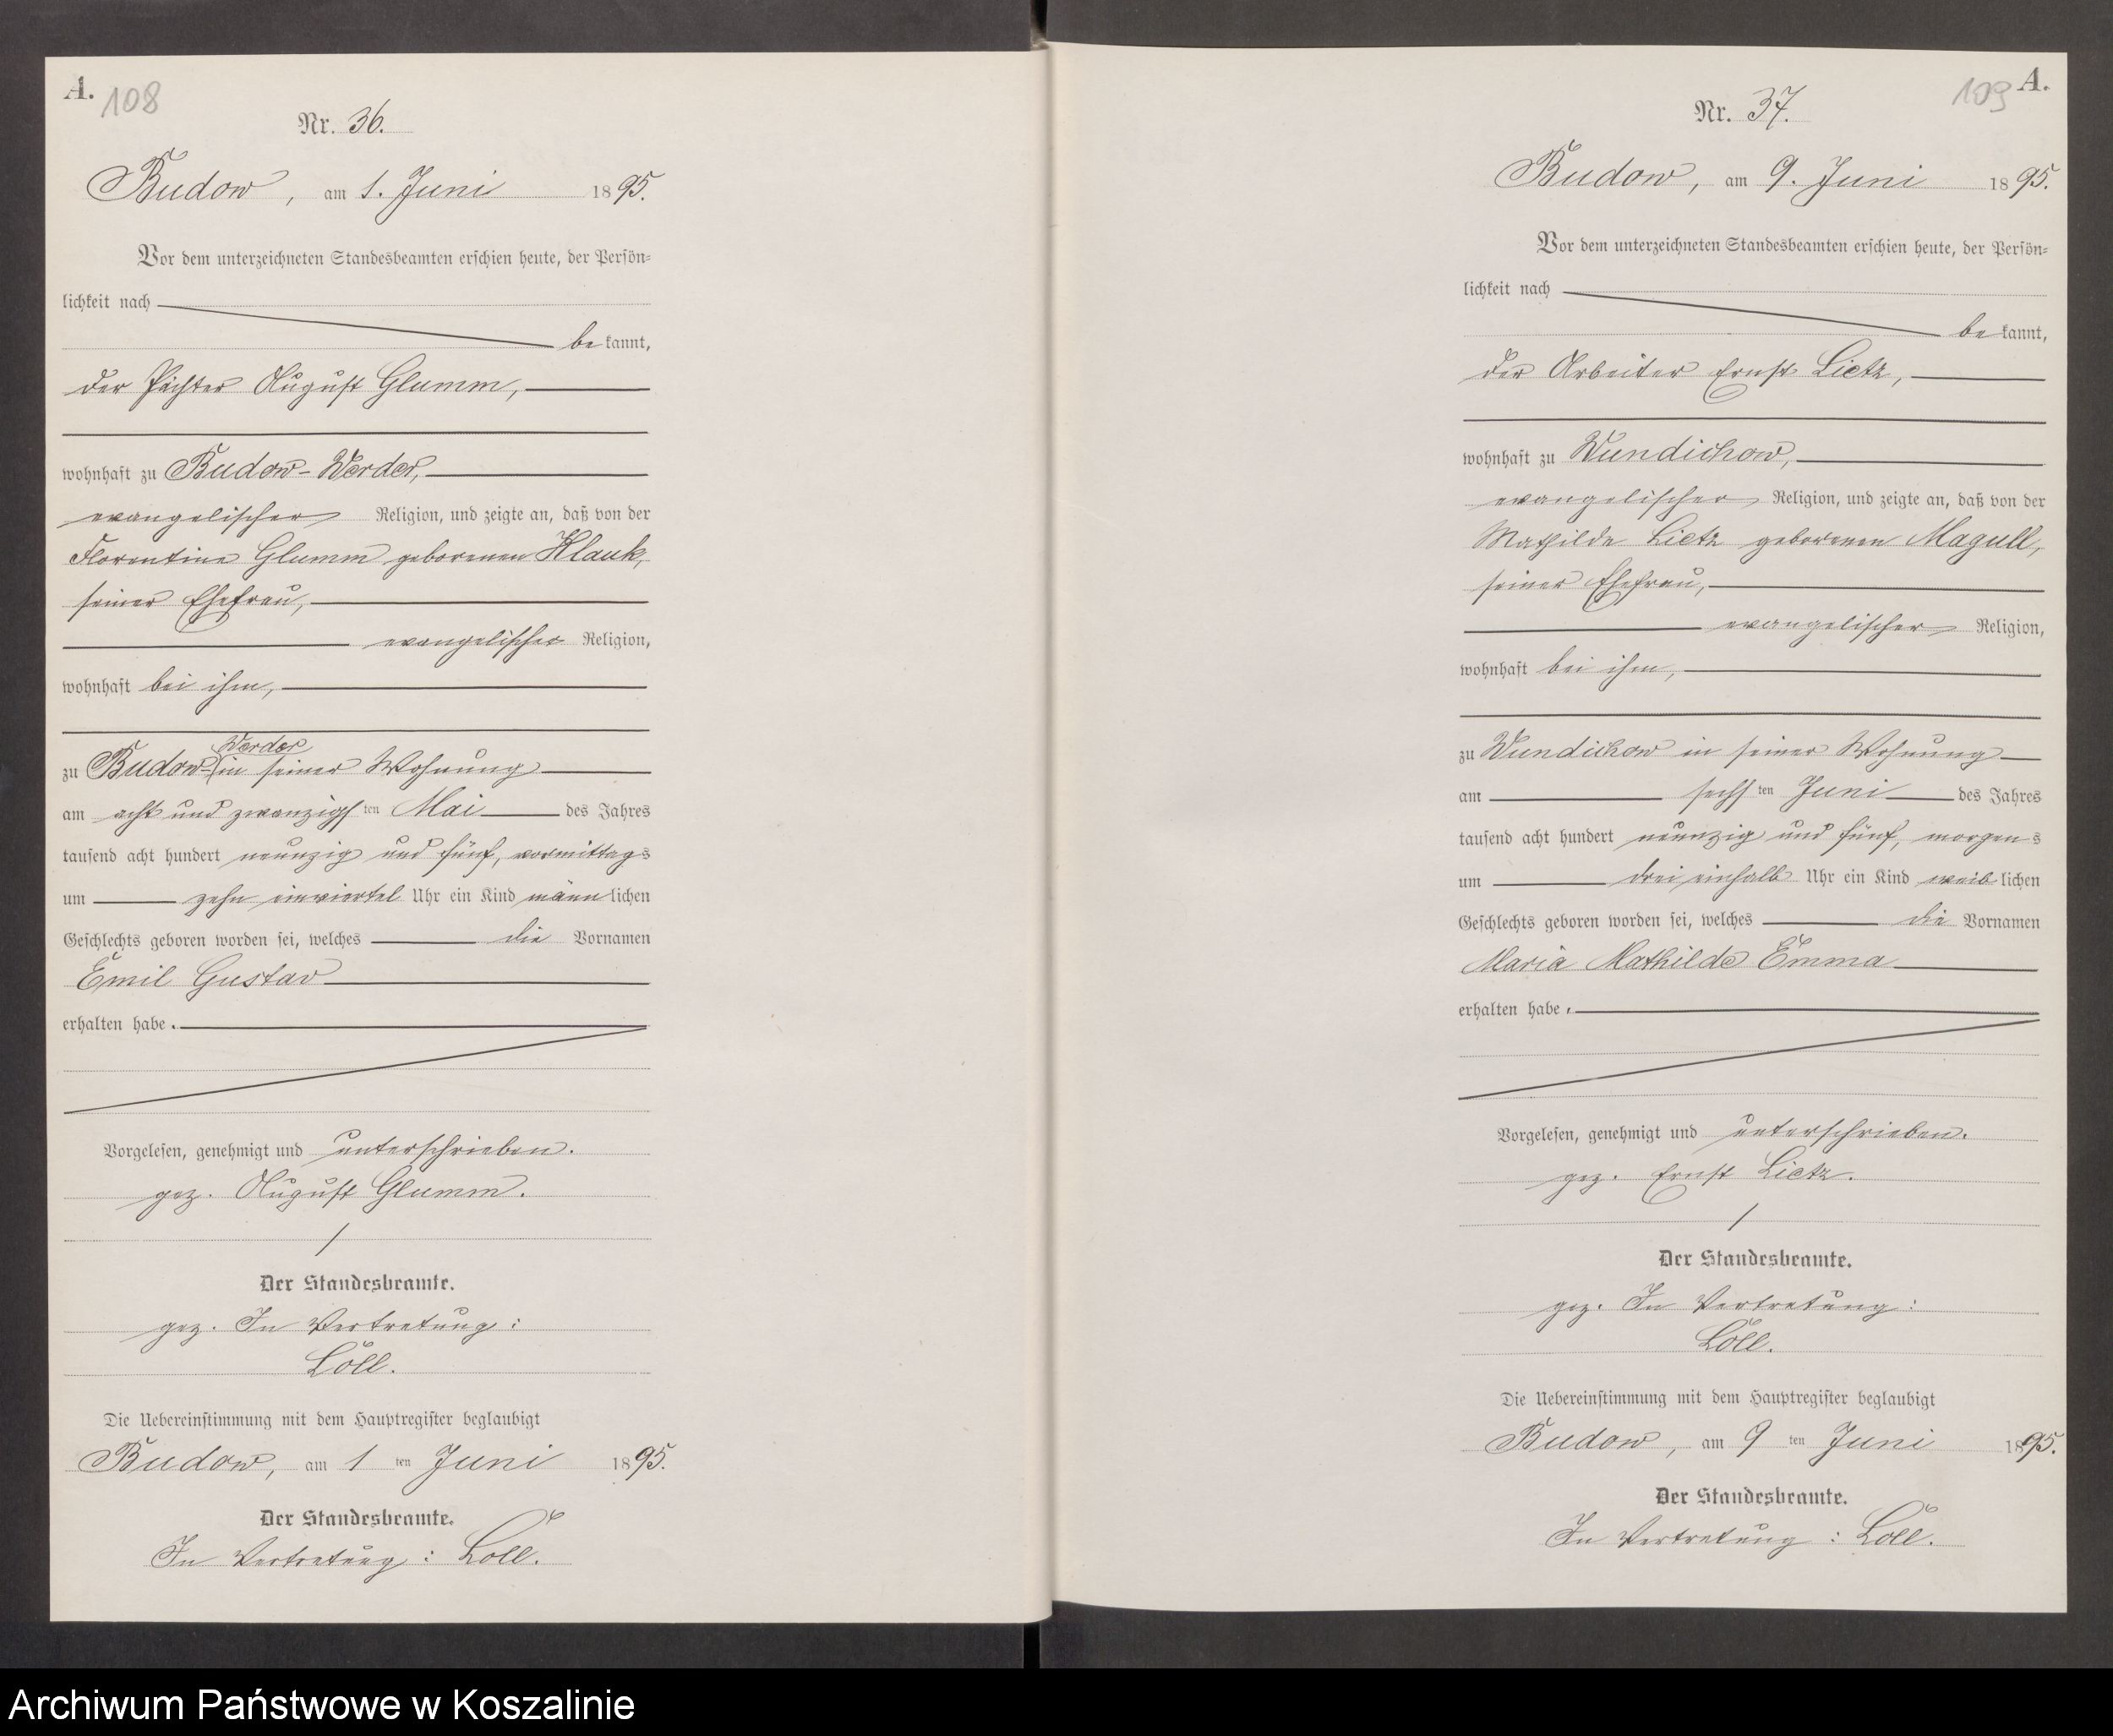 A. 108
Nr. 36.
Budow, am 1. Juni 1895.
Vor dem unterzeichneten Standesbeamten erschien heute, der Persön-
lichkeit nach
be kannt,
der Pächter August Glumm,
wohnhaft zu Budow-Werder,
evangelischer Religion, und zeigte an, daß von der
Florentine Glumm geborenen Klauk,
seiner Ehefrau,
evangelischer Religion,
wohnhaft bei ihm,
Werder
zu Budow- in seiner Wohnung
am acht und zwanzigsten Mai des Jahres
tausend acht hundert neunzig und fünf, vormittags
um zehn einviertel Uhr ein Kind männlichen
Geschlechts geboren worden sei, welches die Vornamen
Emil Gustav
erhalten habe.
Vorgelesen, genehmigt und unterschrieben.
gez. August Glumm.
Der Standesbeamte.
gez. In Vertretung:
Löll.
Die Uebereinstimmung mit dem Hauptregister beglaubigt
Budow, am 1 ten Juni 1895.
Der Standesbeamte.
In Vertretung: Löll.
109 A.
Nr. 37.
Budow, am 9. Juni 1895.
Vor dem unterzeichneten Standesbeamten erschien heute, der Persön-
lichkeit nach
be kannt,
der Arbeiter Ernst Lietz,
wohnhaft zu Wundichow,
evangelischer Religion, und zeigte an, daß von der
Mathilde Lietz geborenen Magull,
seiner Ehefrau,
evangelischer Religion,
wohnhaft bei ihm,
zu Wundichow in seiner Wohnung
am sechsten Juni des Jahres
tausend acht hundert neunzig und fünf, morgens
um drei einhalb Uhr ein Kind weiblichen
Geschlechts geboren worden sei, welches die Vornamen
Maria Mathilde Emma
erhalten habe.
Vorgelesen, genehmigt und unterschrieben.
gez. Ernst Lietz.
Der Standesbeamte.
gez. In Vertretung:
Löll.
Die Uebereinstimmung mit dem Hauptregister beglaubigt
Budow, am 9 ten Juni 1895.
Der Standesbeamte.
In Vertretung: Löll.
Archiwum Państwowe w Koszalinie